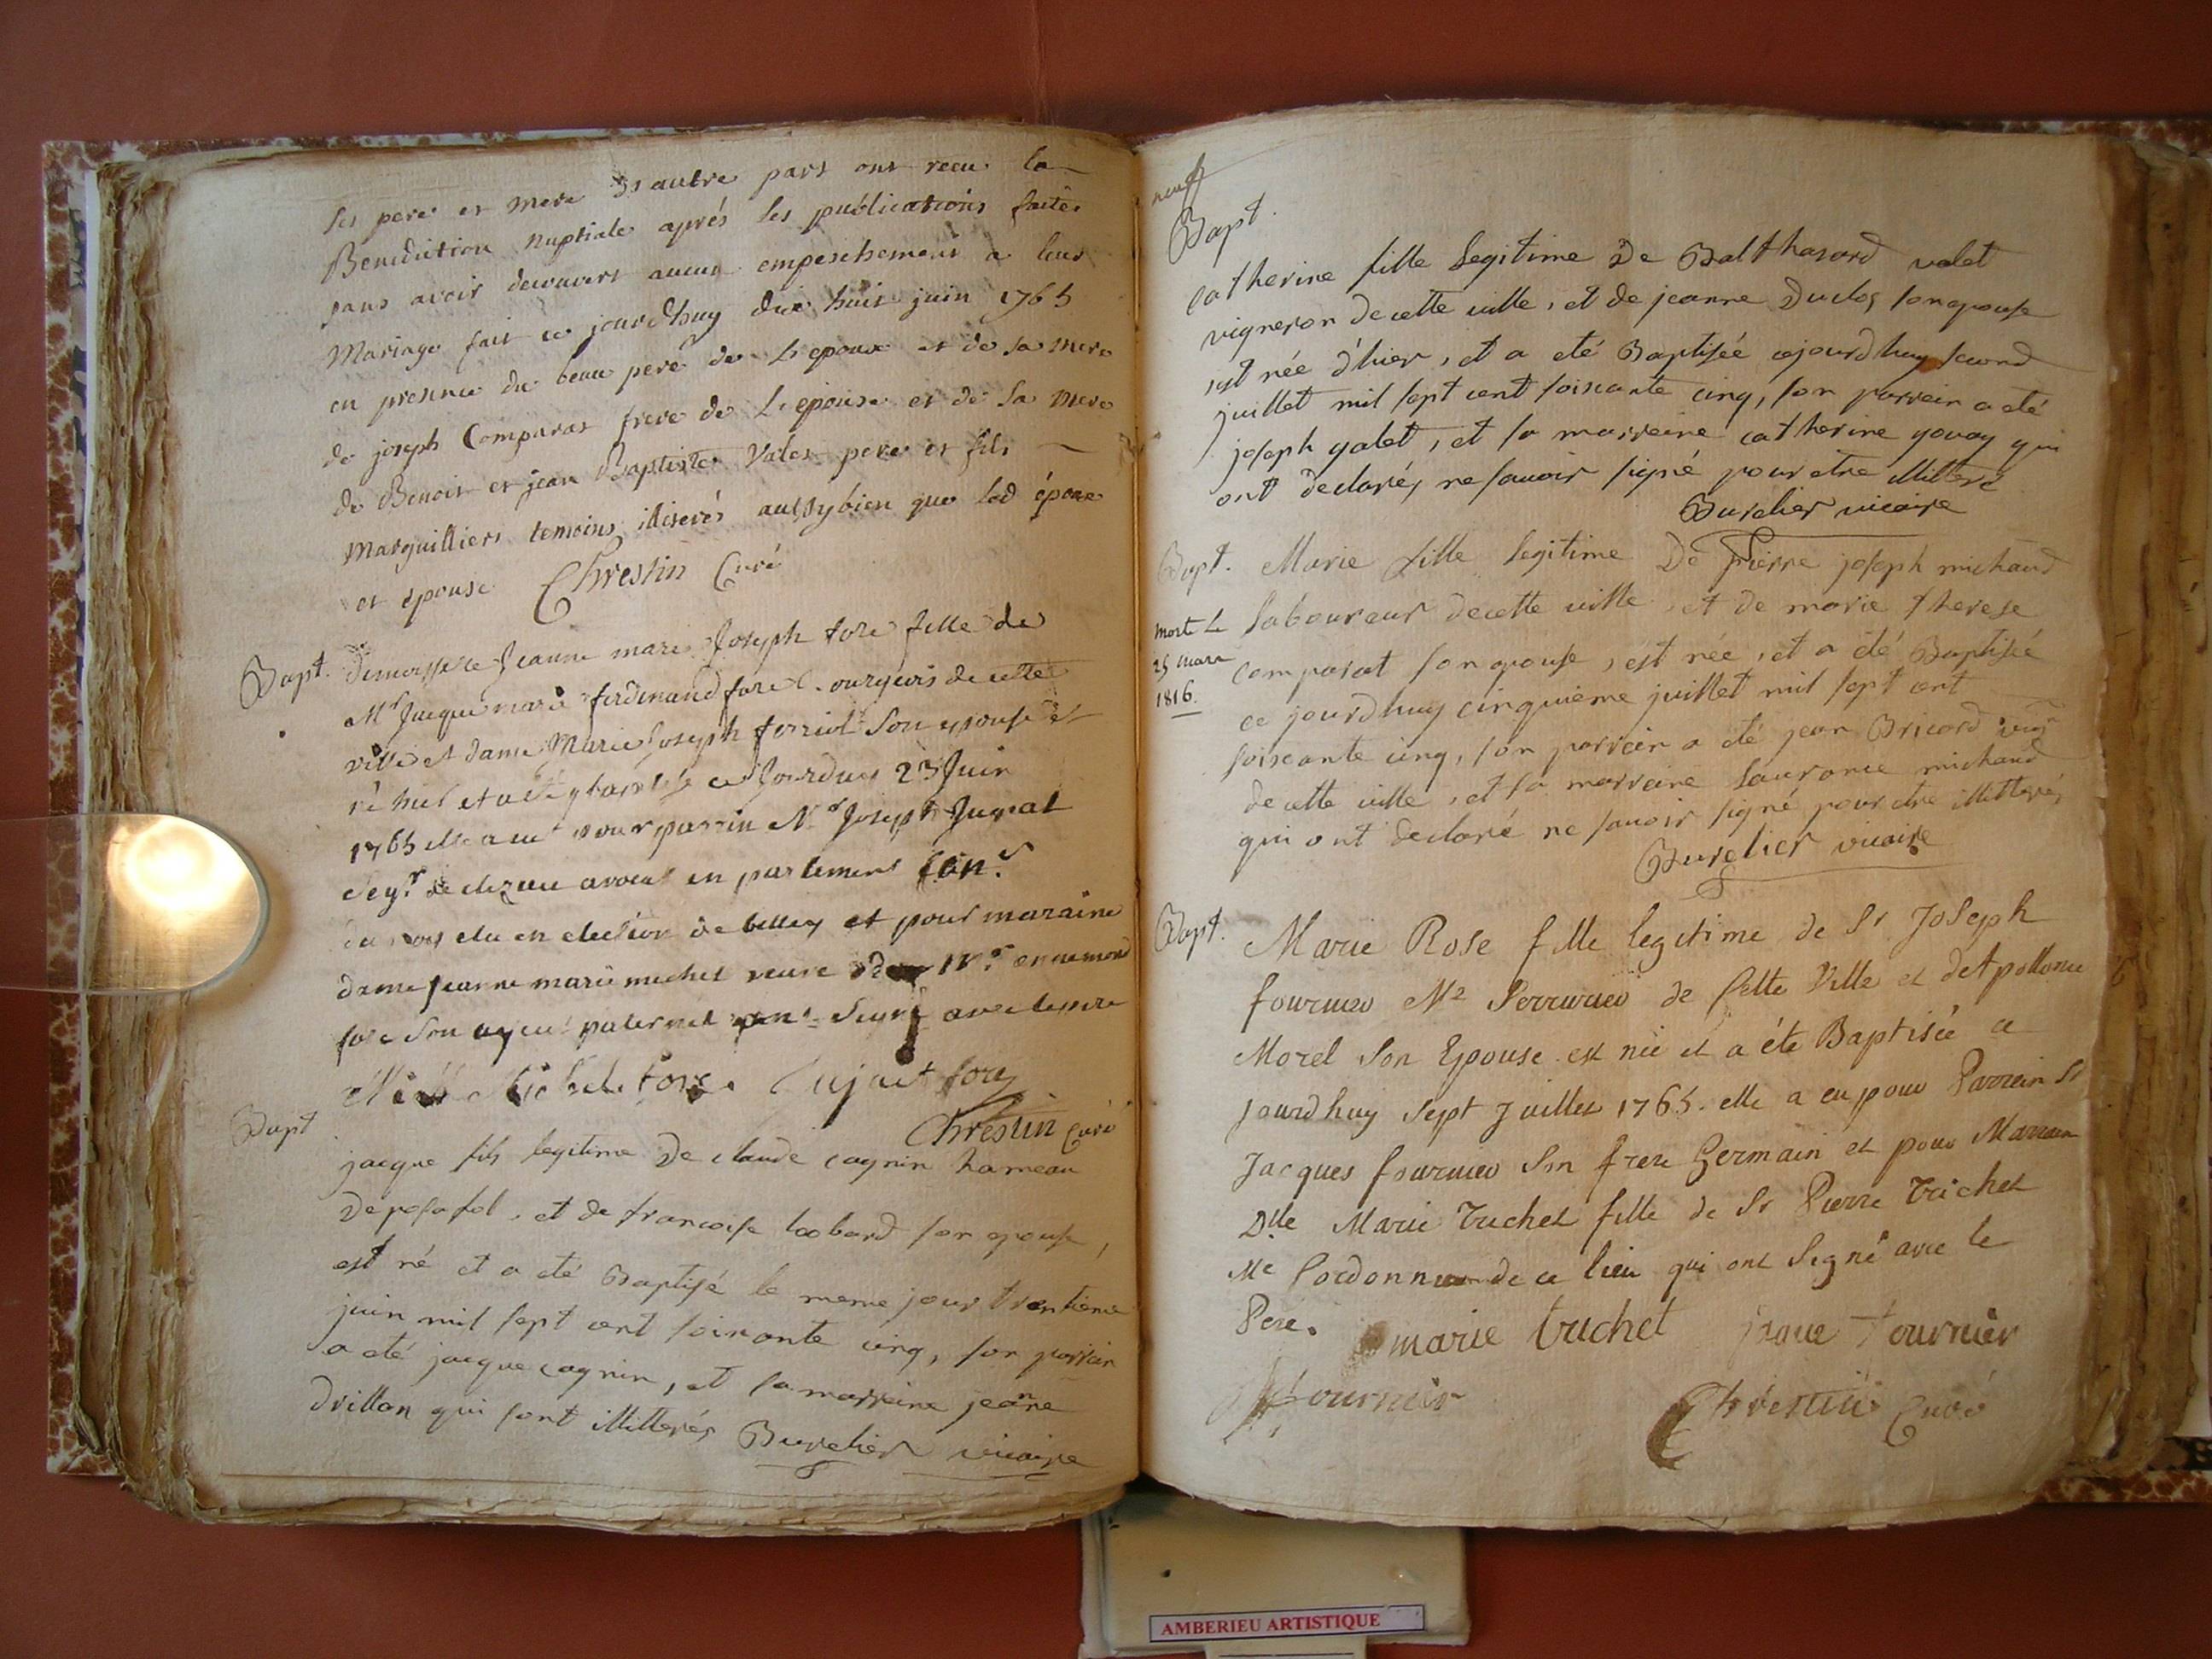 ses pere et mere d'autre part ont recu la
Benediction nuptiale aprés les publications faites
sans avoir decouvert aucun empeschement a leur
Mariage fait ce jourdhuy dix huit juin 1765
en presence du beau pere de L'epoux et de sa mere
de joseph Comparat frere de L'epouse et de sa mere
de Benoit et jean Baptiste Valet pere et fils
Marguilliers temoins illiterés aussybien que led époux
et epouse Chrestin Curé
Bapt. demoiselle Jeanne marie Joseph fore fille de
Mr Jacque marie ferdinand fore bourgeois de cette
ville et dame Marie Joseph ferriot son epouse est
né hier et a été baptisé ce Jourdhuy 23 Juin
1765 elle a eu pour parrin Mr Joseph Jugeat
Seyr. de avocat en parlement Con.r
du roy elu en election de belley et pour maraine
dame jeanne marie michel veuve de Mr. ennemond
fore son ayeul paternel signé avec
Michel fore Jujeat fore
Chrestin Curé
Bapt
jacque fils legitime De claude cagnin hameau
De posafol, et de francoise lobard son epouse,
est né et a eté Baptisé le meme jour trentieme
juin mil sept cent soixante cinq, son parrain
a eté jacque cagnin, et sa marreine jeanne
Drillon qui sont illitterés Burelier vicaire
neuf
Bapt.
Catherine fille legitime De Balthasard valet
vigneron de cette ville, et de jeanne Duclos son epouse
est née d'hier, et a eté Baptisée cejourdhuy second
juillet mil sept cent soiscante cinq, son parrain a eté
joseph galet, et sa marreine catherine gouay qui
ont declarés ne savoir signé pour etre illiteré
Burelier vicaire
Bapt. Marie fille legitime De Pierre joseph michaud
Laboureur de cette ville, et de marie therese
morte Le
25 mars
1816.
comparat son epouse, est née, et a eté Baptisée
ce jourdhuy cinquieme juillet mil sept cent
soiscante cinq, son parrain a eté jean Bricard vig
de cette ville, et sa marreine Laurance michaud
qui ont declaré ne savoir signé pour etre illitterés
Burelier vicaire
Bapt. Marie Rose fille legitime de Sr Joseph
fournier Me Serrurier de Cette Ville et det pollonie
Morel Son Epouse est née et a éte Baptisée ce
jourdhuy sept Juillet 1765. elle a eu pour Parrein Sr
Jacques fournier Son frere Germain et pour Marrain
Dlle Marie Truchet fille de Sr Pierre Truchet
Me Cordonnier de ce lieu qui ont Signé avec le
Pere. marie truchet jaque fournier
fournier Chrestin Curé
AMBERIEU ARTISTIQUE